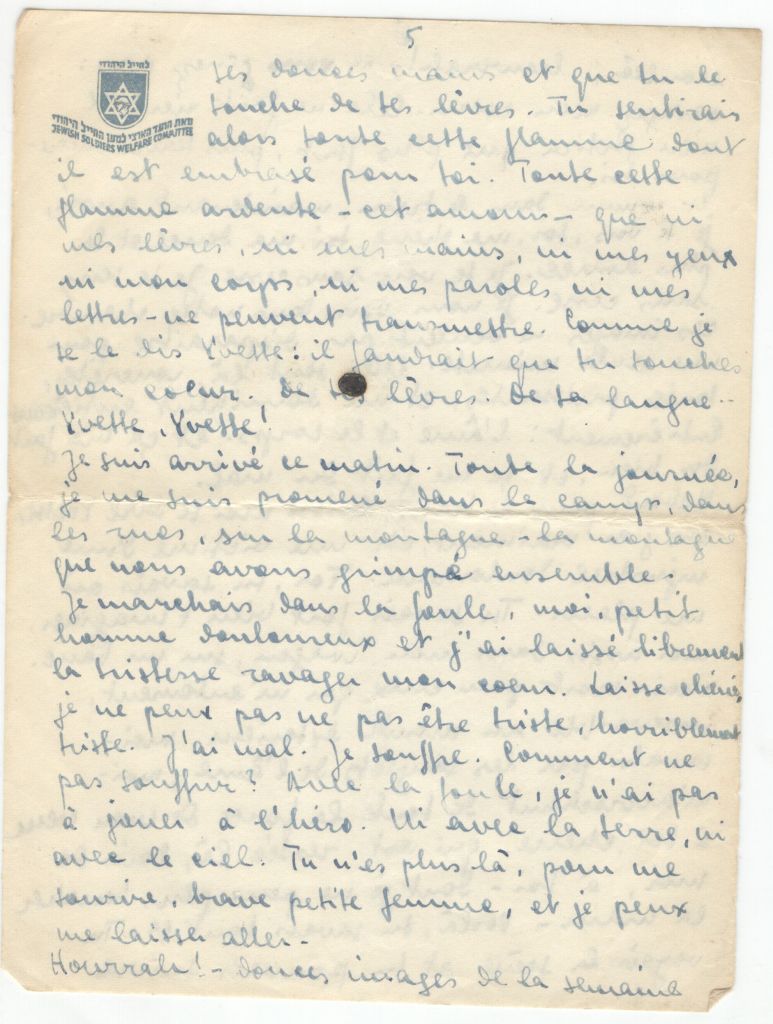 5
לחייל היהודי
מאת הועד הארצי למען החייל היהודי
JEWISH SOLDIERS WELFARE COMMITTEE
tes douces mains et que tu le
touche de tes lèvres. Tu sentirais
alors toute cette flamme dont
il est embrasé pour toi. Toute cette
flamme ardente - cet amour - que ni
mes lèvres, ni mes mains, ni mes yeux
ni mon corps, ni mes paroles ni mes
lettres - ne peuvent transmettre. Comme je
te le dis Yvette: il faudrait que tu touches
mon coeur. De tes lèvres. De ta langue..
Yvette, Yvette!
Je suis arrivé ce matin. Toute la journée,
je me suis promené dans le camp, dans
les rues, sur la montagne - la montagne
que nous avons grimpé ensemble.
Je marchais dans la foule, moi, petit
homme douloureux et j'ai laissé librement
la tristesse ravager mon coeur. Laisse chérie,
je ne peux pas ne pas être triste, horriblement
triste. J'ai mal. Je souffre. Comment ne
pas souffrir? Avec la foule, je n'ai pas
à jouer à l'héro. Ni avec la terre, ni
avec le ciel. Tu n'es plus là, pour me
sourire, brave petite femme, et je peux
me laisser aller.
Hourrah! - douces images de la semaine